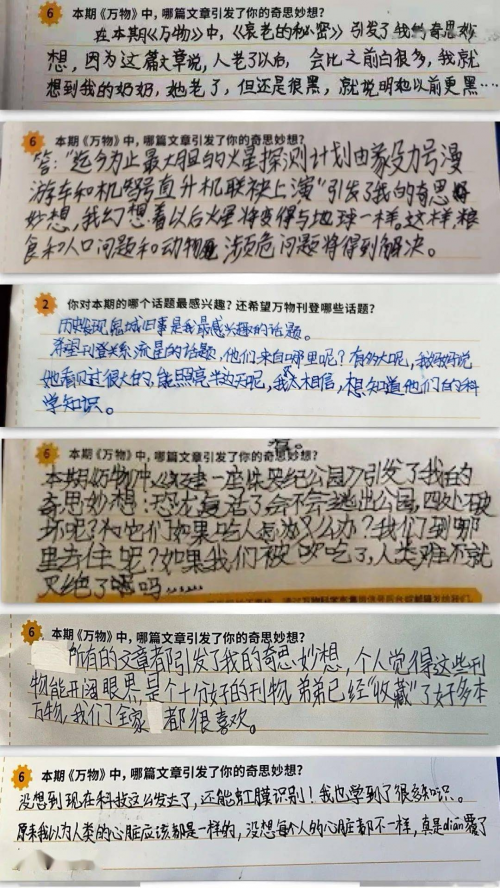 6 本期《万物》中，哪篇文章引发了你的奇思妙想？
在本期《万物》中，《衰老的秘密》引发了我的奇思妙
想，因为这篇文章说，人老了以后，会比之前白很多，我就
想到我的奶奶，她老了，但还是很黑，就说明她以前更黑……
6 本期《万物》中，哪篇文章引发了你的奇思妙想？
答：“迄今为止最大胆的火星探测计划由毅力号漫
游车和机智号直升机联袂上演”引发了我的奇思
妙想，我幻想着以后火星将变得与地球一样。这样，粮
食和人口问题和动物濒危问题将得到解决。
2 你对本期的哪个话题最感兴趣？还希望万物刊登哪些话题？
旧事是我最感兴趣的话题。
希望刊登关系流星的话题，他们来自哪里呢？有多大呢，我妈妈说
她看见过很大的，能照亮半边天呢，我不太相信，想知道他们的科
学知识。
6 本期《万物》中，哪篇文章引发了你的奇思妙想？
答。
本期《万物》中，《建一座侏罗纪公园》引发了我的
奇思妙想：恐龙复活了，会不会逃出公园，四处破
坏呢？它们如果吃人怎么办？我们到哪
里去住呢？如果我们被吃了，人类难不就
灭绝了吗……
6 本期《万物》中，哪篇文章引发了你的奇思妙想？
所有的文章都引发了我的奇思妙想，个人觉得这些刊
物能开阔眼界，是个十分好的刊物，弟弟已经“收藏”了好多本
万物，我们了全家都很喜欢。
6 本期《万物》中，哪篇文章引发了你的奇思妙想？
没想到现在科技这么发达了，还能虹膜识别！我也学到了很多知识。
原来我以为人类的心脏应该都是一样的，没想每个人的心脏都不一样，真是dian覆了